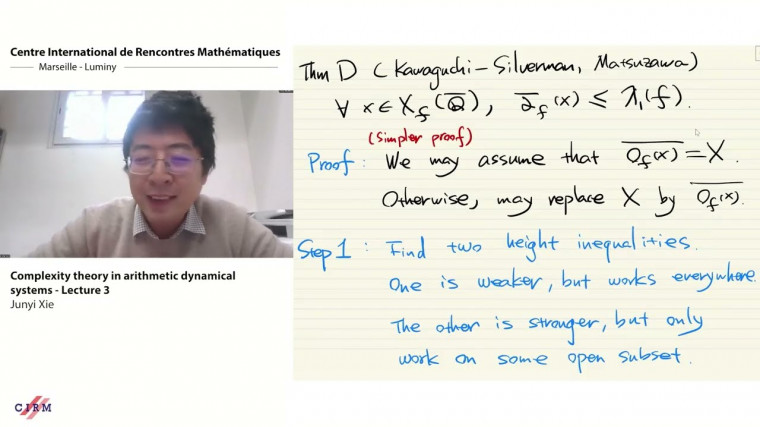 Centre International de Rencontres Mathématiques
Marseille - Luminy
Complexity theory in arithmetic dynamical
systems - Lecture 3
Junyi Xie
CIRM
Thm D (Kawaguchi-Silverman, Matsuzawa)
∀ x ∈ X_f(Q̅), α̅_f(x) ≤ λ₁(f).
(simpler proof)
Proof: We may assume that \overline{O_f(x)} = X.
Otherwise, may replace X by \overline{O_f(x)}.
Step 1: Find two height inequalities.
One is weaker, but works everywhere.
The other is stronger, but only
work on some open subset.